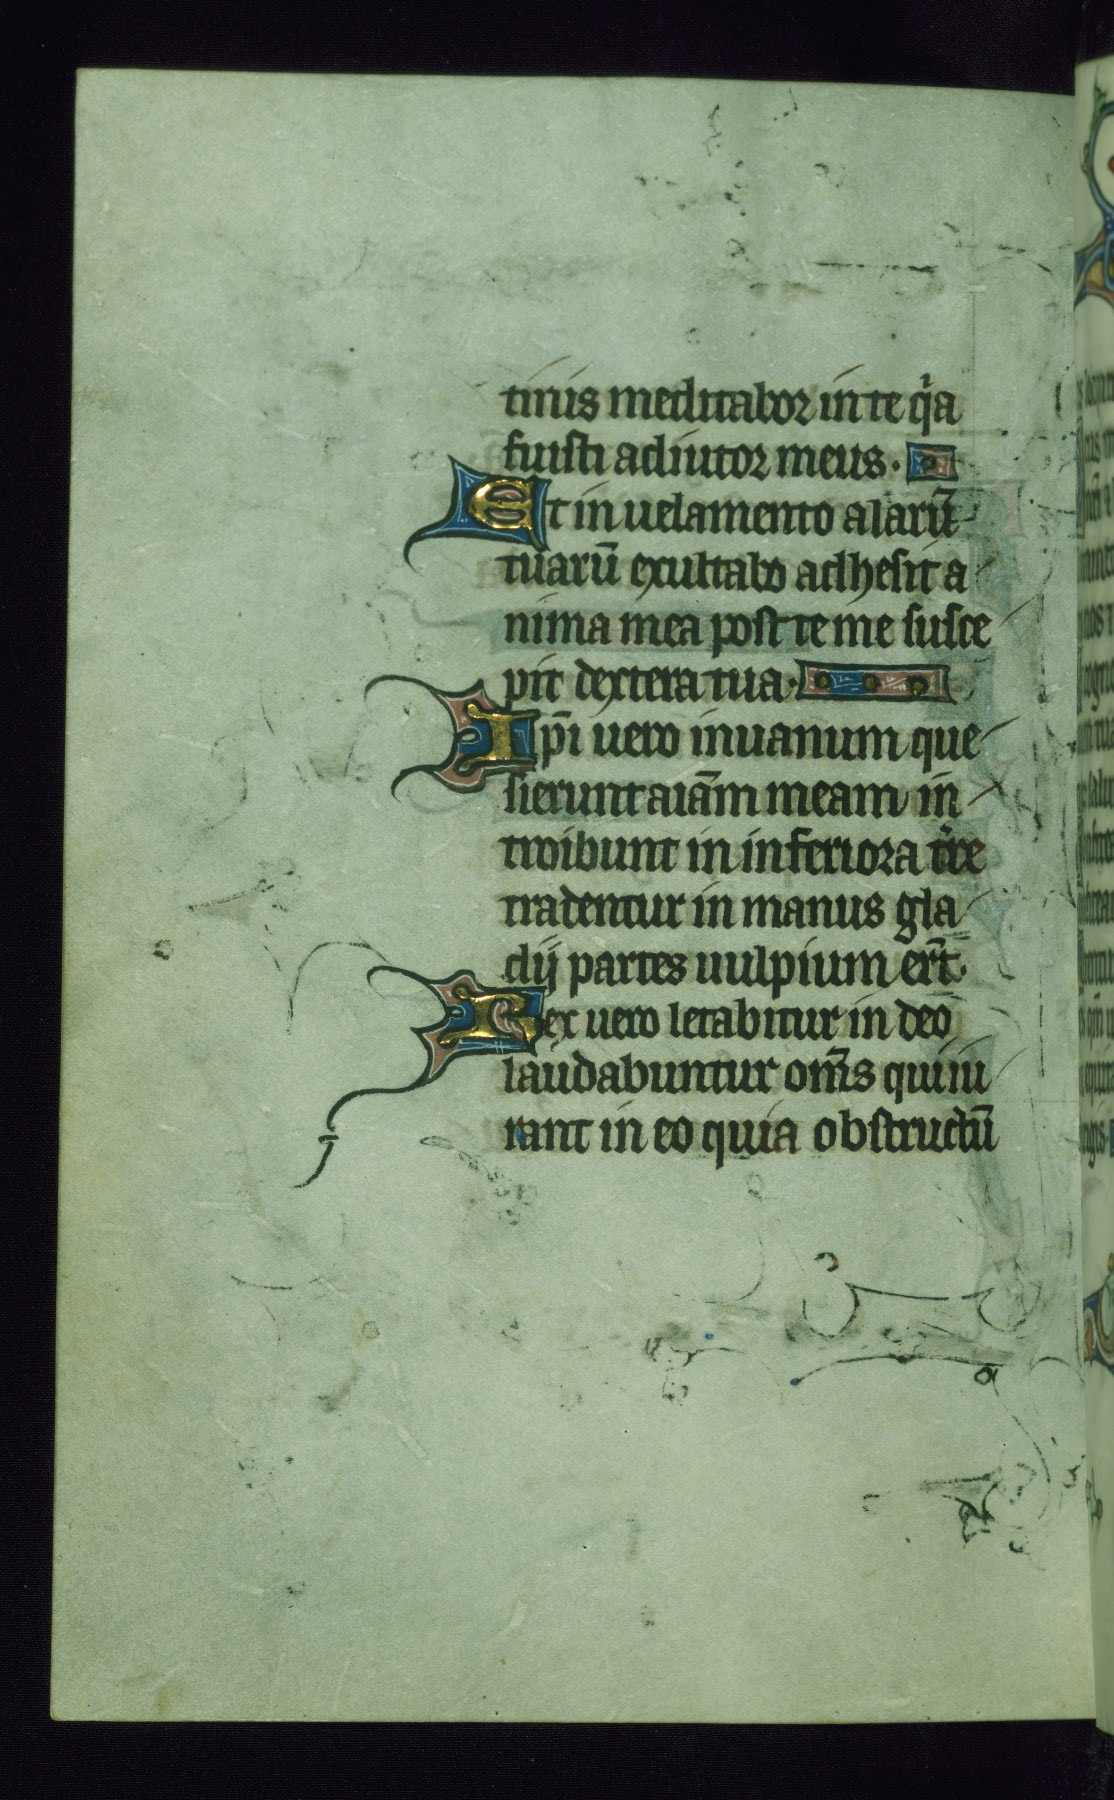 tinis meditabor in te q̇a
fuisti adiutor meus.
Et in uelamento alarū
tuarū exultabo adhesit a
nima mea post te me susce
pit dextera tua.
Ip̄i uero inuanum que
sierunt aīam meam in
troibunt in inferiora t̄re
tradentur in manus gla
dij partes uulpium er̄t.
Rex uero letabitur in deo
laudabuntur om̄s qui iu
rant in eo quia obstructū